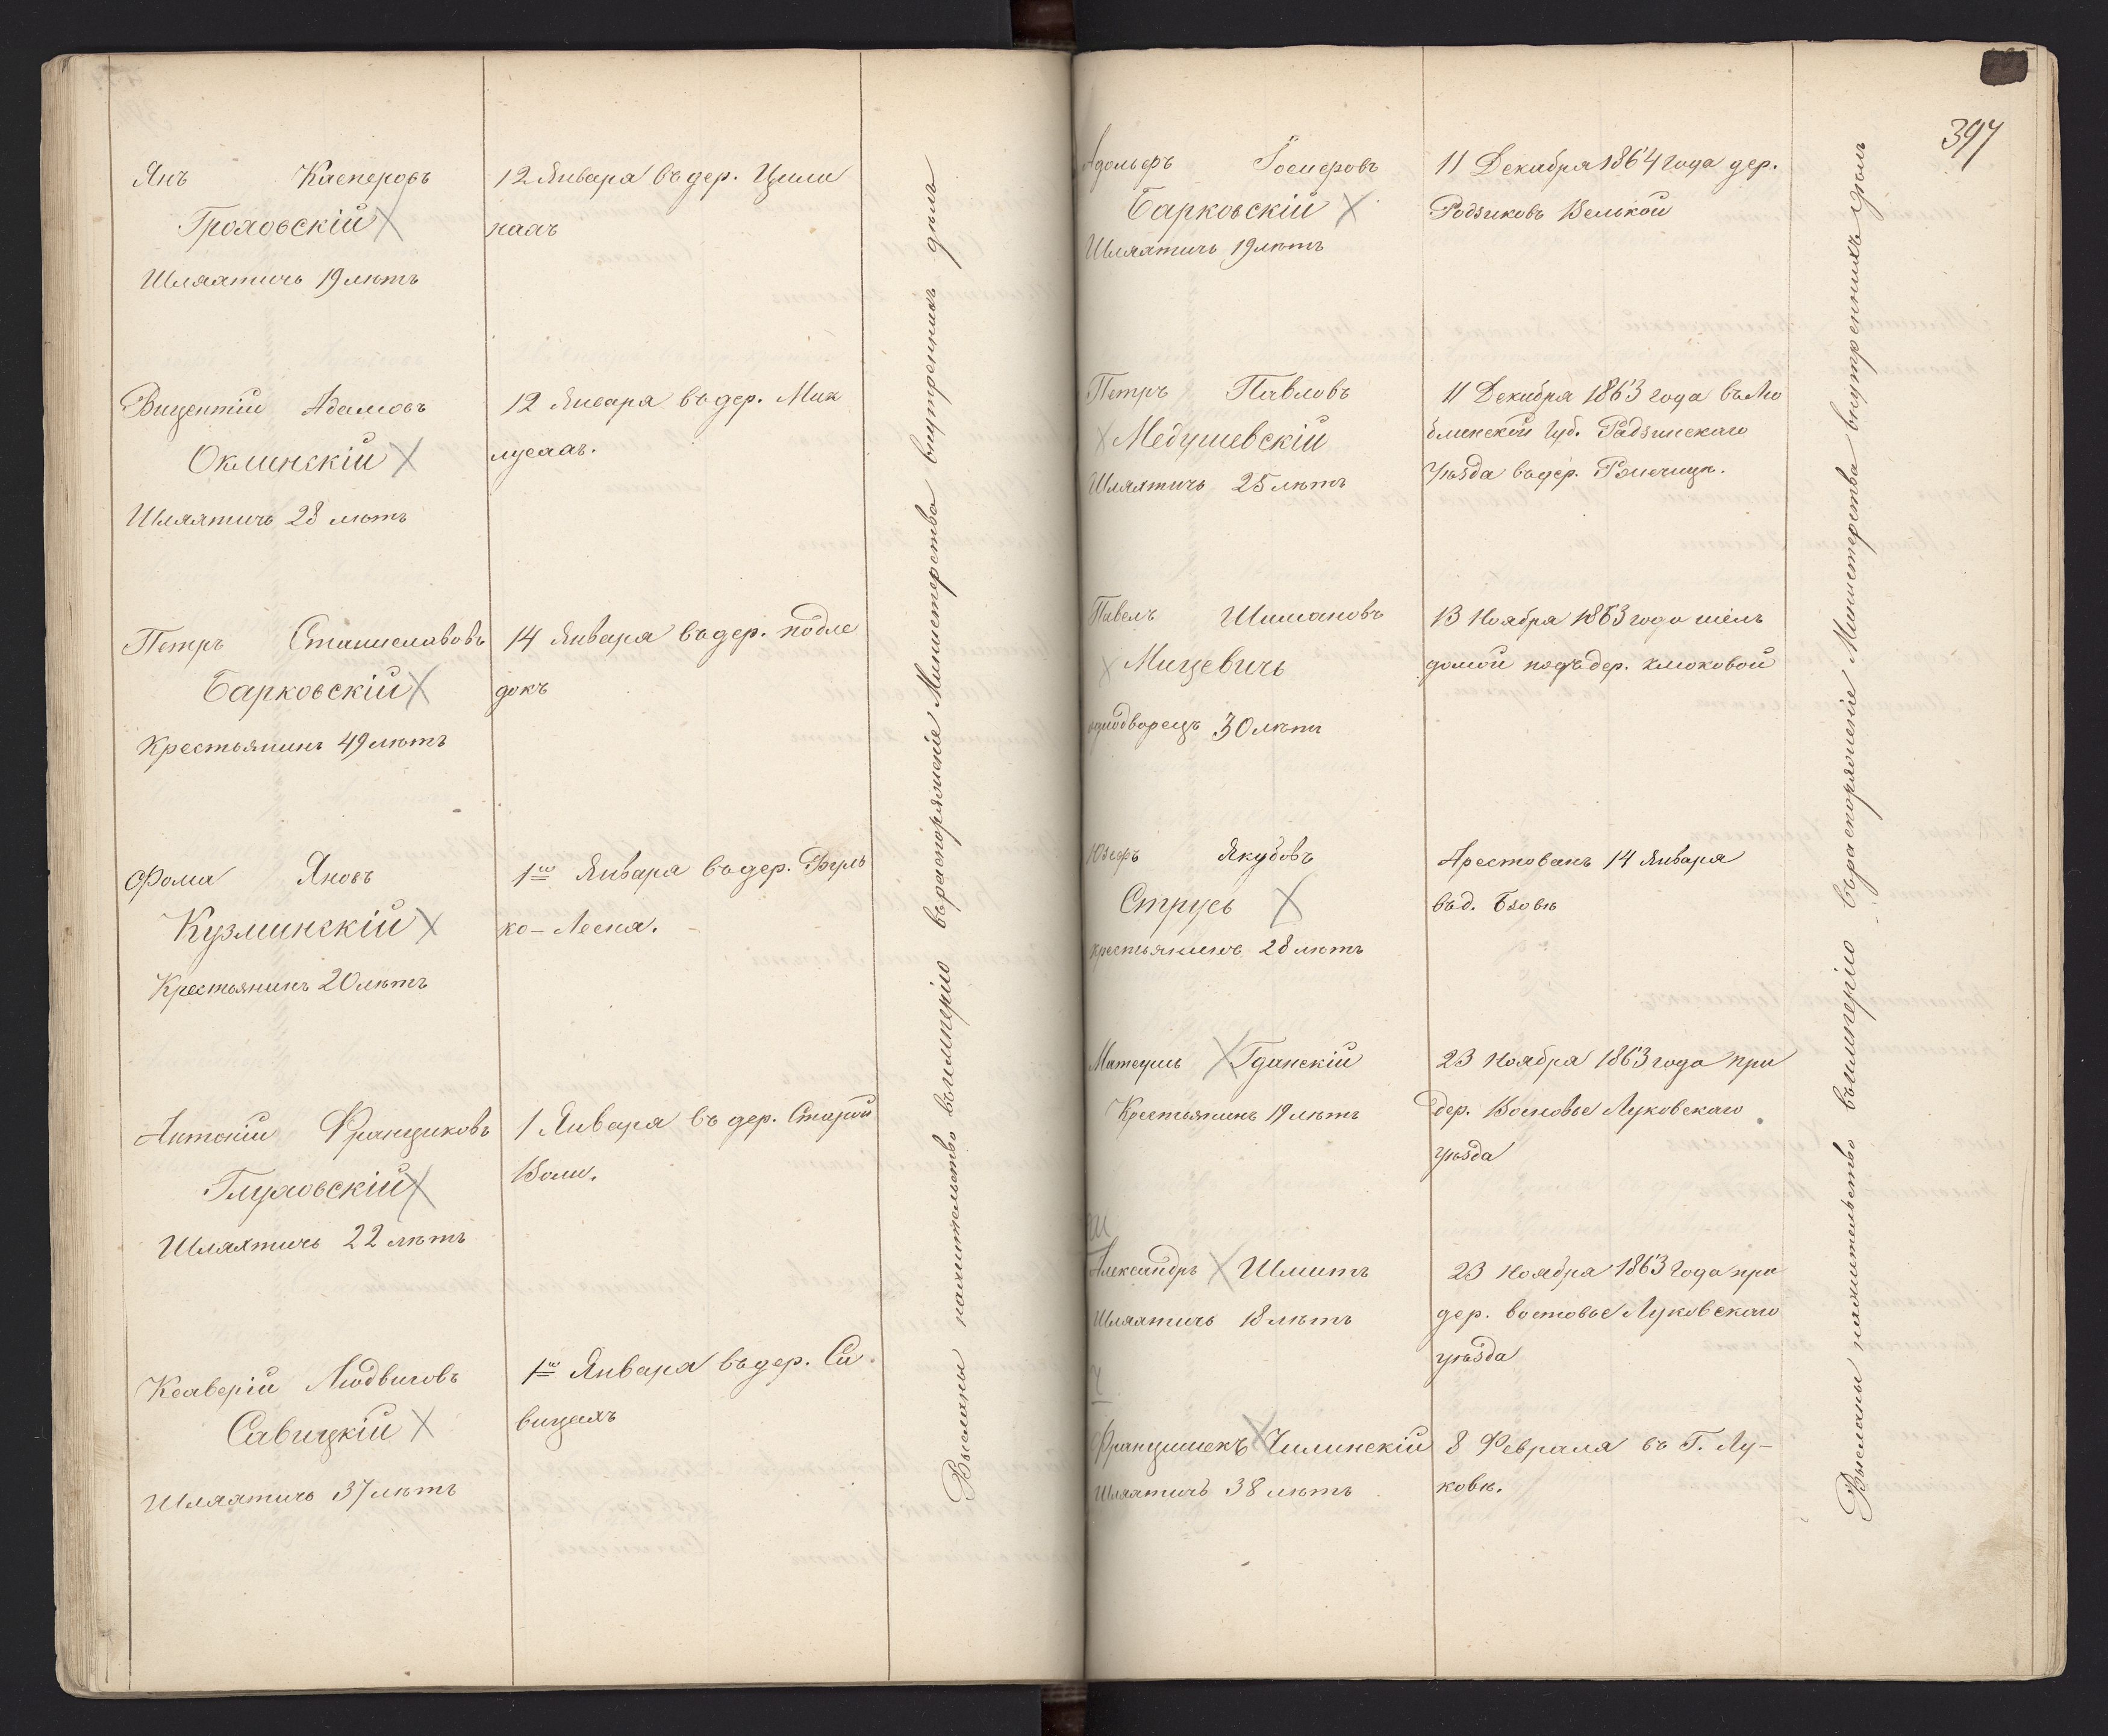 Янъ Касперовъ
Гроховскій
Шляхтичь 19 лѣтъ
12 Января въ дер. Цели
нахъ
Вицентій Адамовъ
Оклинскій
Шляхтичь 28 лѣтъ
12 Января въ дер. Мик
лусахъ.
Петръ Станиславовъ
Барковскій
Крестьянинъ 49 лѣтъ
14 Января въ дер. подле
докъ
Фома Яновъ
Кузминскій
Крестьянинъ 20 лѣтъ
1го Января въ дер.
ко-Лесня.
Антоній Францишковъ
Глуховскій
Шляхтичь 22 лѣтъ
1 Января въ дер. Старой
Воли.
Ксаверій Людвиговъ
Савицкій
Шляхтичь 37 лѣтъ
1го Января въ дер. Са
вицахъ
Высланы на жительство въ имперію въ распоряженіе Министерства внутреннихъ дѣлъ
397
Адольфъ Іосифовъ
Барковскій
Шляхтичь 19 лѣтъ
11 Декабря 1864 года дер.
Радзиковъ Велькой
Петръ Павловъ
Медушевскій
Шляхтичь 25 лѣтъ
11 Декабря 1863 года въ Лю
блинской губ. Радзинскаго
уѣзда въ дер.
Павелъ Шимановъ
Мицевичь
однодворецъ 30 лѣтъ
13 Ноября 1863 года шелъ
домой подъ дер. клюковой
Юзефъ Якубовъ
Струсь
крестьянинъ 28 лѣтъ
Арестованъ 14 Января
въ д. Бзовѣ
Матеушъ Гданскій
Крестьянинъ 19 лѣтъ
23 Ноября 1863 года при
дер. Восновье Луковскаго
уѣзда
Ш
Александръ Шмитъ
Шляхтичь 18 лѣтъ
23 Ноября 1863 года при
дер. востовье Луковскаго
уѣзда
Ч
Францишекъ Чилинскій
Шляхтичь 38 лѣтъ
8 Февраля въ Г. Лу-
ковѣ.
Высланы на жительство въ имперію въ распоряженіе Министерства внутреннихъ дѣлъ